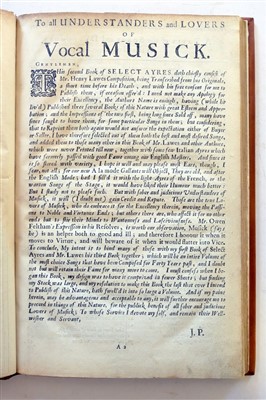 To all UNDERSTANDERS and LOVERS
OF
Vocal MUSICK.
GENTLEMEN,
THis second Book of SELECT AYRES doth chiefly consist of
Mr. Henry Lawes Composition, being Transcribed from his Originals,
a short time before his Death, and with his free consent for me to
Publish them, if occasion offer'd: I need not make any Apology for
their Excellency, the Authors Name is enough, having (while he
liv'd) Published three several Books of this Nature with great Esteem and Appro-
bation; and the Impressions of the two first, being long since Sold off, many have
since sought to have them, for some particular Songs in them: but considering
that to Reprint them both again would not answer the expectation either of Buyer
or Seller, I have therefore selected out of them both the best and most desired Songs,
and added them to these many other in this Book of Mr. Lawes and other Authors,
which were never Printed till now, together with some few Italian Ayres which
have formerly passed with good Fame among our English Masters. And since it
is so stored with variety, I hope it will not only please all, though, I
fear, not all; for our new A la mode Gallants will object, They are old, and after
the English Mode; had I fill'd it with the light Ayres of the French, or the
wanton Songs of the Stage, it would have liked their Humours much better:
But I study not to please such. But with sober and judicious Understanders of
Musick, it will (I doubt not) gain Credit and Repute. Those are the true Lo-
vers of Musick, who do embrace it for the Excellency therein, moving the Passi-
ons to Noble and Virtuous Ends; but others there are, who affect it for no other
ends but to stir their Minds to Wantonness and Lasciviousness. Mr. Owen
Feltham's Expression in his Resolves, is worth our observation, Musick (say's
he) is an helper both to good and ill; and therefore I honour it when it
moves to Virtue, and will beware of it when it would flatter into Vice.
To conclude, My intent is to bind many of these with my first Book of Select
Ayres and Mr. Lawes his third Book together, which will be an intire Volume of
the most choice Songs that have been Composed for Forty Years past, and I doubt
not but will retain their Fame for many more to come. I must confess when I be-
gan this Book, my design was to have it comprised in fewer Sheets; but my
Stock was large, and my exultation to make this Book the last that ever I intend
to Publish of this Nature, hath swell'd it into so large a Volume. And if my pains
herein, may be advantageous and acceptable to any, it will further encourage me to
proceed in things of this Nature, for the publick benefit of all sober and judicious
Lovers of Musick; To whose Service I devote my self, and remain their Well-
wisher and Servant,
J. P.
A 2